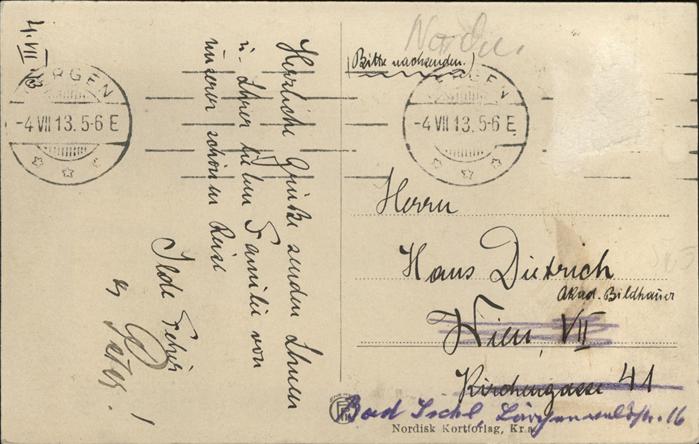 4. VII. 13
Herrliche Grüße senden Ihnen
u. Ihrer lieben Familie von
unserer schönen Reise
Ilde
Peter!
BERGEN
-4 VII 13. 5-6 E
BERGEN
-4 VII 13. 5-6 E
(Bitte nachsenden.)
Herrn
Hans Dietrich
Akad. Bildhauer
Wien, VII
Kirchengasse 41
Bad Ischl
16
Nordisk Kortforlag, Kr.a.